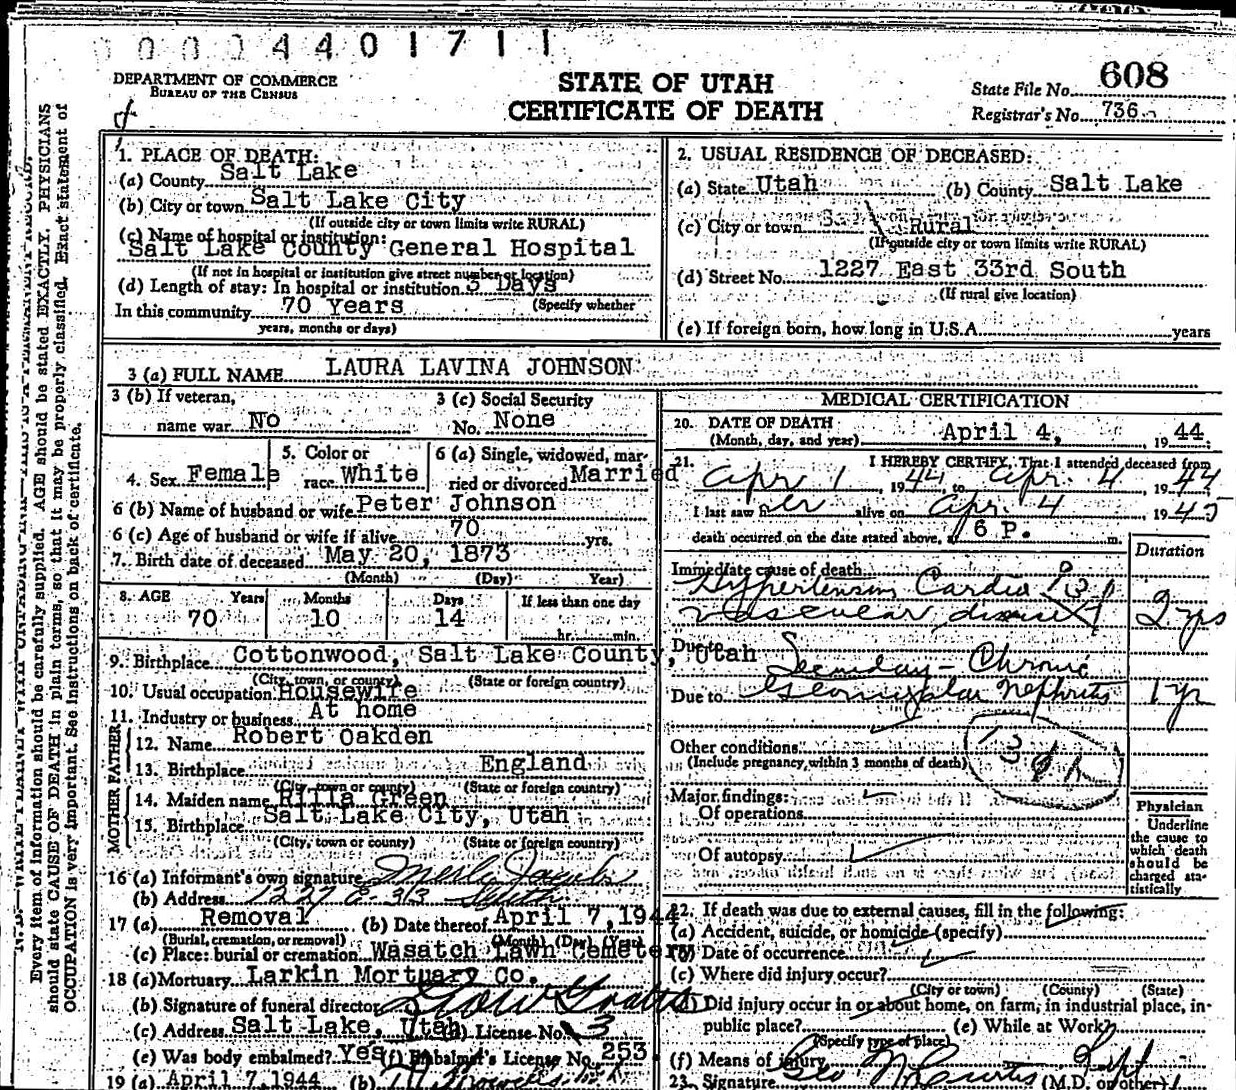 0004401711
DEPARTMENT OF COMMERCE
BUREAU OF THE CENSUS
STATE OF UTAH
CERTIFICATE OF DEATH
State File No. 608
Registrar's No. 736
Every item of information should be carefully supplied. AGE should be stated EXACTLY. PHYSICIANS
should state CAUSE OF DEATH in plain terms, so that it may be properly classified. Exact statement of
OCCUPATION is very important. See instructions on back of certificate.
1. PLACE OF DEATH:
(a) County Salt Lake
(b) City or town Salt Lake City
(If outside city or town limits write RURAL)
(c) Name of hospital or institution:
Salt Lake County General Hospital
(If not in hospital or institution give street number or location)
(d) Length of stay: In hospital or institution 3 Days
(Specify whether
In this community 70 Years
years, months or days)
2. USUAL RESIDENCE OF DECEASED:
(a) State Utah (b) County Salt Lake
(c) City or town Rural
(If outside city or town limits write RURAL)
(d) Street No. 1227 East 33rd South
(If rural give location)
(e) If foreign born, how long in U.S.A. years
3 (a) FULL NAME LAURA LAVINA JOHNSON
3 (b) If veteran, name war No
3 (c) Social Security No. None
4. Sex Female
5. Color or race White
6 (a) Single, widowed, married or divorced Married
6 (b) Name of husband or wife Peter Johnson
6 (c) Age of husband or wife if alive 70 yrs.
7. Birth date of deceased May 20, 1873
(Month) (Day) Year)
8. AGE Years Months Days If less than one day
70 10 14 hr. min.
9. Birthplace Cottonwood, Salt Lake County, Utah
(City, town, or county) (State or foreign country)
10. Usual occupation Housewife
11. Industry or business At home
FATHER
12. Name Robert Oakden
13. Birthplace England
(City, town or county) (State or foreign country)
MOTHER
14. Maiden name Rilla Green
15. Birthplace Salt Lake City, Utah
(City, town or county) (State or foreign country)
16 (a) Informant's own signature Merle Jacobs
(b) Address 1227 E. 33 South
17 (a) Removal (b) Date thereof April 7, 1944
(Burial, cremation, or removal) (Month) (Day) (Year)
(c) Place: burial or cremation Wasatch Lawn Cemetery
18 (a) Mortuary Larkin Mortuary Co.
(b) Signature of funeral director
(c) Address Salt Lake, Utah (d) License No. 3
(e) Was body embalmed? Yes (f) Embalmer's License No. 253
19 (a) April 7, 1944 (b)
MEDICAL CERTIFICATION
20. DATE OF DEATH
(Month, day, and year) April 4, 1944
21. I HEREBY CERTIFY, That I attended deceased from
Apr 1, 1944, to Apr. 4 1944
I last saw her alive on Apr. 4 1945
death occurred on the date stated above, at 6 P. m.
Duration
Immediate cause of death
Hypertensive Cardio
vascular disease 2 yrs
Due to Secondary - Chronic
Due to Glomerular Nephritis 1 yr
Other conditions
(Include pregnancy within 3 months of death)
Major findings:
Of operations
Of autopsy
Physician
Underline
the cause to
which death
should be
charged sta-
tistically
22. If death was due to external causes, fill in the following:
(a) Accident, suicide, or homicide (specify)
(b) Date of occurrence
(c) Where did injury occur?
(City or town) (County) (State)
(d) Did injury occur in or about home, on farm, in industrial place, in
public place? (e) While at Work?
(Specify type of place)
(f) Means of injury
23. Signature Geo N Curtis Supt (M.D. or other)